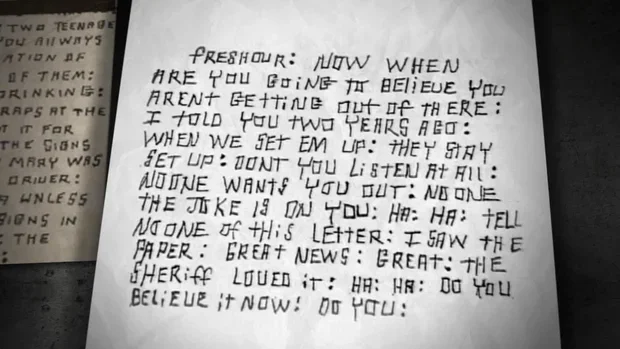 TWO TEENAGE
YOU ALLWAYS
ATION OF
OF THEM:
DRINKING:
RAPS AT THE
T IT FOR
THE SIGNS
MARY WAS
DRIVER:
UNLESS
SIGNS IN
THE
FRESHOUR: NOW WHEN
ARE YOU GOING TO BELIEVE YOU
ARENT GETTING OUT OF THERE:
I TOLD YOU TWO YEARS AGO:
WHEN WE SET EM UP: THEY STAY
SET UP: DONT YOU LISTEN AT ALL:
NOONE WANTS YOU OUT: NOONE
THE JOKE IS ON YOU: HA: HA: TELL
NOONE OF THIS LETTER: I SAW THE
PAPER: GREAT NEWS: GREAT: THE
SHERIFF LOVED IT: HA: HA: DO YOU
BELIEVE IT NOW! DO YOU: